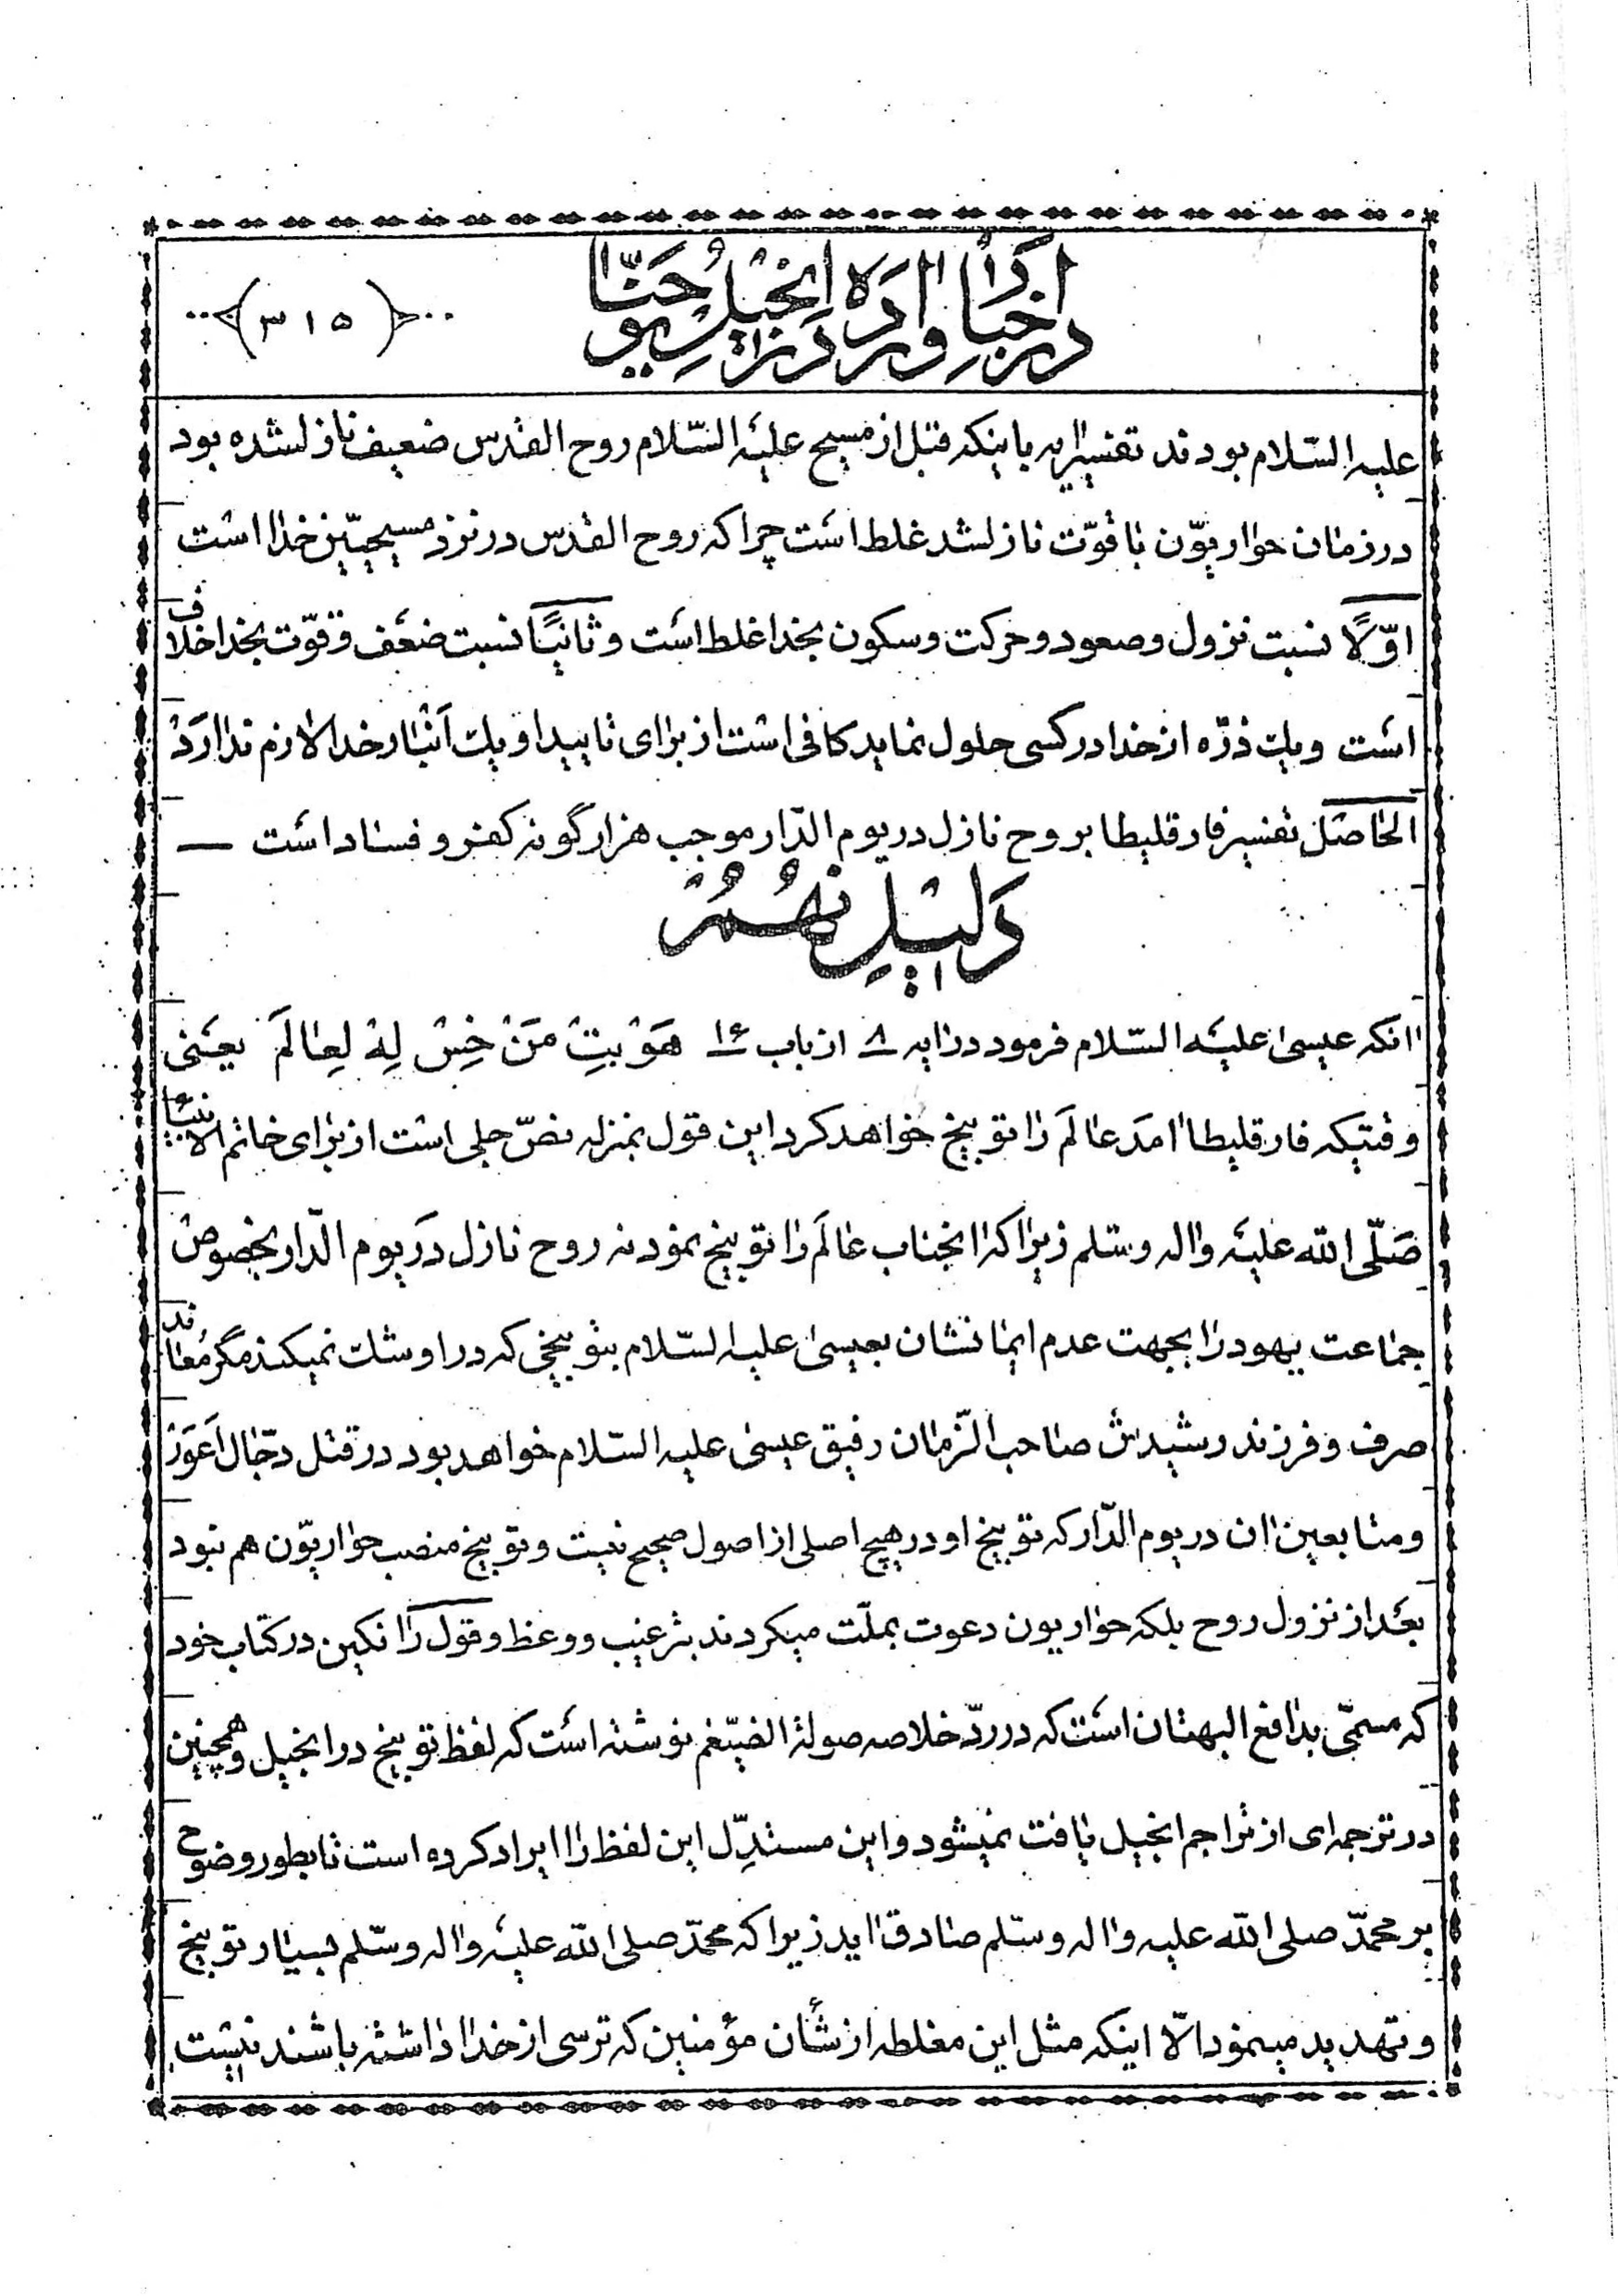 در اخبار وارده در انجیل یوحنا
(۳۱۵)
علیه السّلام بودند تفسیر باینکه قبل از مسیح علیه السّلام روح القدس ضعیف نازلشده بود
در زمان حواریّون با قوّت نازلشد غلط است چرا که روح القدس در نزد مسیحیّین خدا است
اوّلاً نسبت نزول و صعود و حرکت و سکون بخدا غلط است و ثانیاً نسبت ضعف و قوّت بخدا خلاف
است و یک ذرّه از خدا در کسی حلول نماید کافی است از برای تایید او یک انبار خدا لازم ندارد
الحاصل تفسیر فارقلیطا بروح نازل در یوم الدّار موجب هزار گونه کفر و فساد است
دَلیلِ نهُمُ
انکه عیسی علیه السّلام فرمود در ایه ۸ از باب ۱۶ هَوْ بتِ مَنْ خِسْ لِهْ لِعالَمَ یعنی
وقتیکه فارقلیطا امد عالَم را توبیخ خواهد کرد این قول بمنزله نصّ جلی است از برای خاتم الانبیاء
صَلّی الله علیه واله وسلم زیرا که انجناب عالَم را توبیخ نمود نه روح نازل در یوم الدّار بخصوص
جماعت یهود را بجهت عدم ایمانشان بعیسی علیه السّلام بتوبیخی که در او شک نمیکند مگر مُعاند
صرف و فرزند رشیدش صاحب الزّمان رفیق عیسی علیه السّلام خواهد بود در قتل دجّال اَعوَر
و متابعین ان در یوم الدّار که توبیخ او در هیچ اصلی از اصول صحیح نیست و توبیخ منصب حواریّون هم نبود
بعد از نزول روح بلکه حواریون دعوت بملّت میکردند بترغیب و وعظ و قول رانکین در کتاب خود
که مسمّی بدافع البهتان است که در ردّ خلاصه صولة الضیغم نوشته است که لفظ توبیخ در انجیل و همچنین
در ترجمه‌ای از تراجم انجیل یافت نمیشود و این مستدِّل این لفظ را ایراد کرده است تا بطور وضوح
بر محمّد صلی الله علیه واله وسلم صادق اید زیرا که محمّد صلی الله علیه واله وسلم بسیار توبیخ
و تهدید مینمود الّا اینکه مثل این مغلطه از شأن مؤمنین که ترسی از خدا داشته باشند نیست